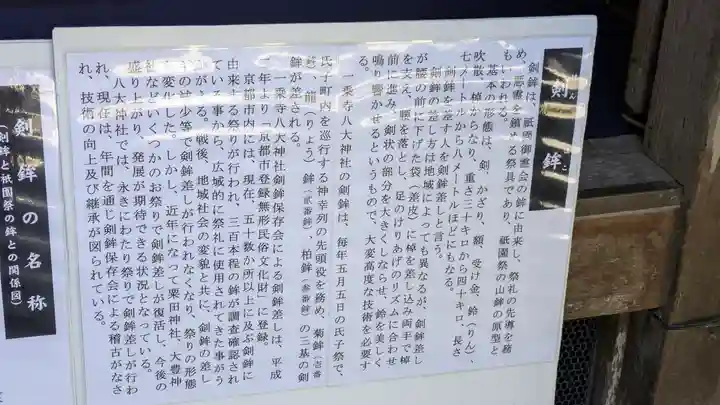 剣鉾
剣鉾は、祇園御霊会の鉾に由来し、祭礼の先導を務
め、悪霊を鎮める祭具であり、祇園祭の山鉾の原型と
もいわれる。
基本の形態は、剣、かざり、額、受け金、鈴（りん）、
吹散、棹からなり、重さ三十キロから四十キロ、長さ
七メートルから八メートルほどにもなる。
剣鉾を差す人を剣鉾差しと言う。
剣鉾の差し方は地域によっても異なるが、剣鉾差し
が腰の前に下げた袋（差皮）に棹を差し込み両手で棹
を支え、腰を落とし、足のけりあげのリズムに合わせ
前に進み、剣状の部分を大きくしならせ、鈴を美しく
鳴り響かせるというもので、大変高度な技術を必要す
る。
一乗寺八大神社の剣鉾は、毎年五月五日の氏子祭で、
氏子町内を巡行する神幸列の先頭役を務め、菊鉾（壱番
鉾）、龍（りょう）鉾（弐番鉾）、柏鉾（参番鉾）の三基の剣
鉾が差される。
一乗寺八大神社剣鉾保存会による剣鉾差しは、平成
年より「京都市登録無形民俗文化財」に登録
京都市内には、現在、五十数か所以上に及ぶ剣鉾に
由来する祭りが行われ、三百本程の鉾が調査確認され
ている事から、広域的に祭礼に使用されてきた事がう
かがえる。戦後、地域社会の変貌と共に、剣鉾の差し
手の減少等で剣鉾差しが行われなくなり、祭りの形態
も変化した。しかし、近年になって粟田神社、大豊神
社などいくつかのお祭りで剣鉾差しが復活し、今後の
盛り上がり、発展が期待できる状況となっている。
八大神社では、永きにわたり祭りで剣鉾差しが行わ
れ、現在は、年間を通じ剣鉾保存会による稽古がなさ
れ、技術の向上及び継承が図られている。
剣鉾の名称
（剣鉾と祇園祭の鉾との関係図）